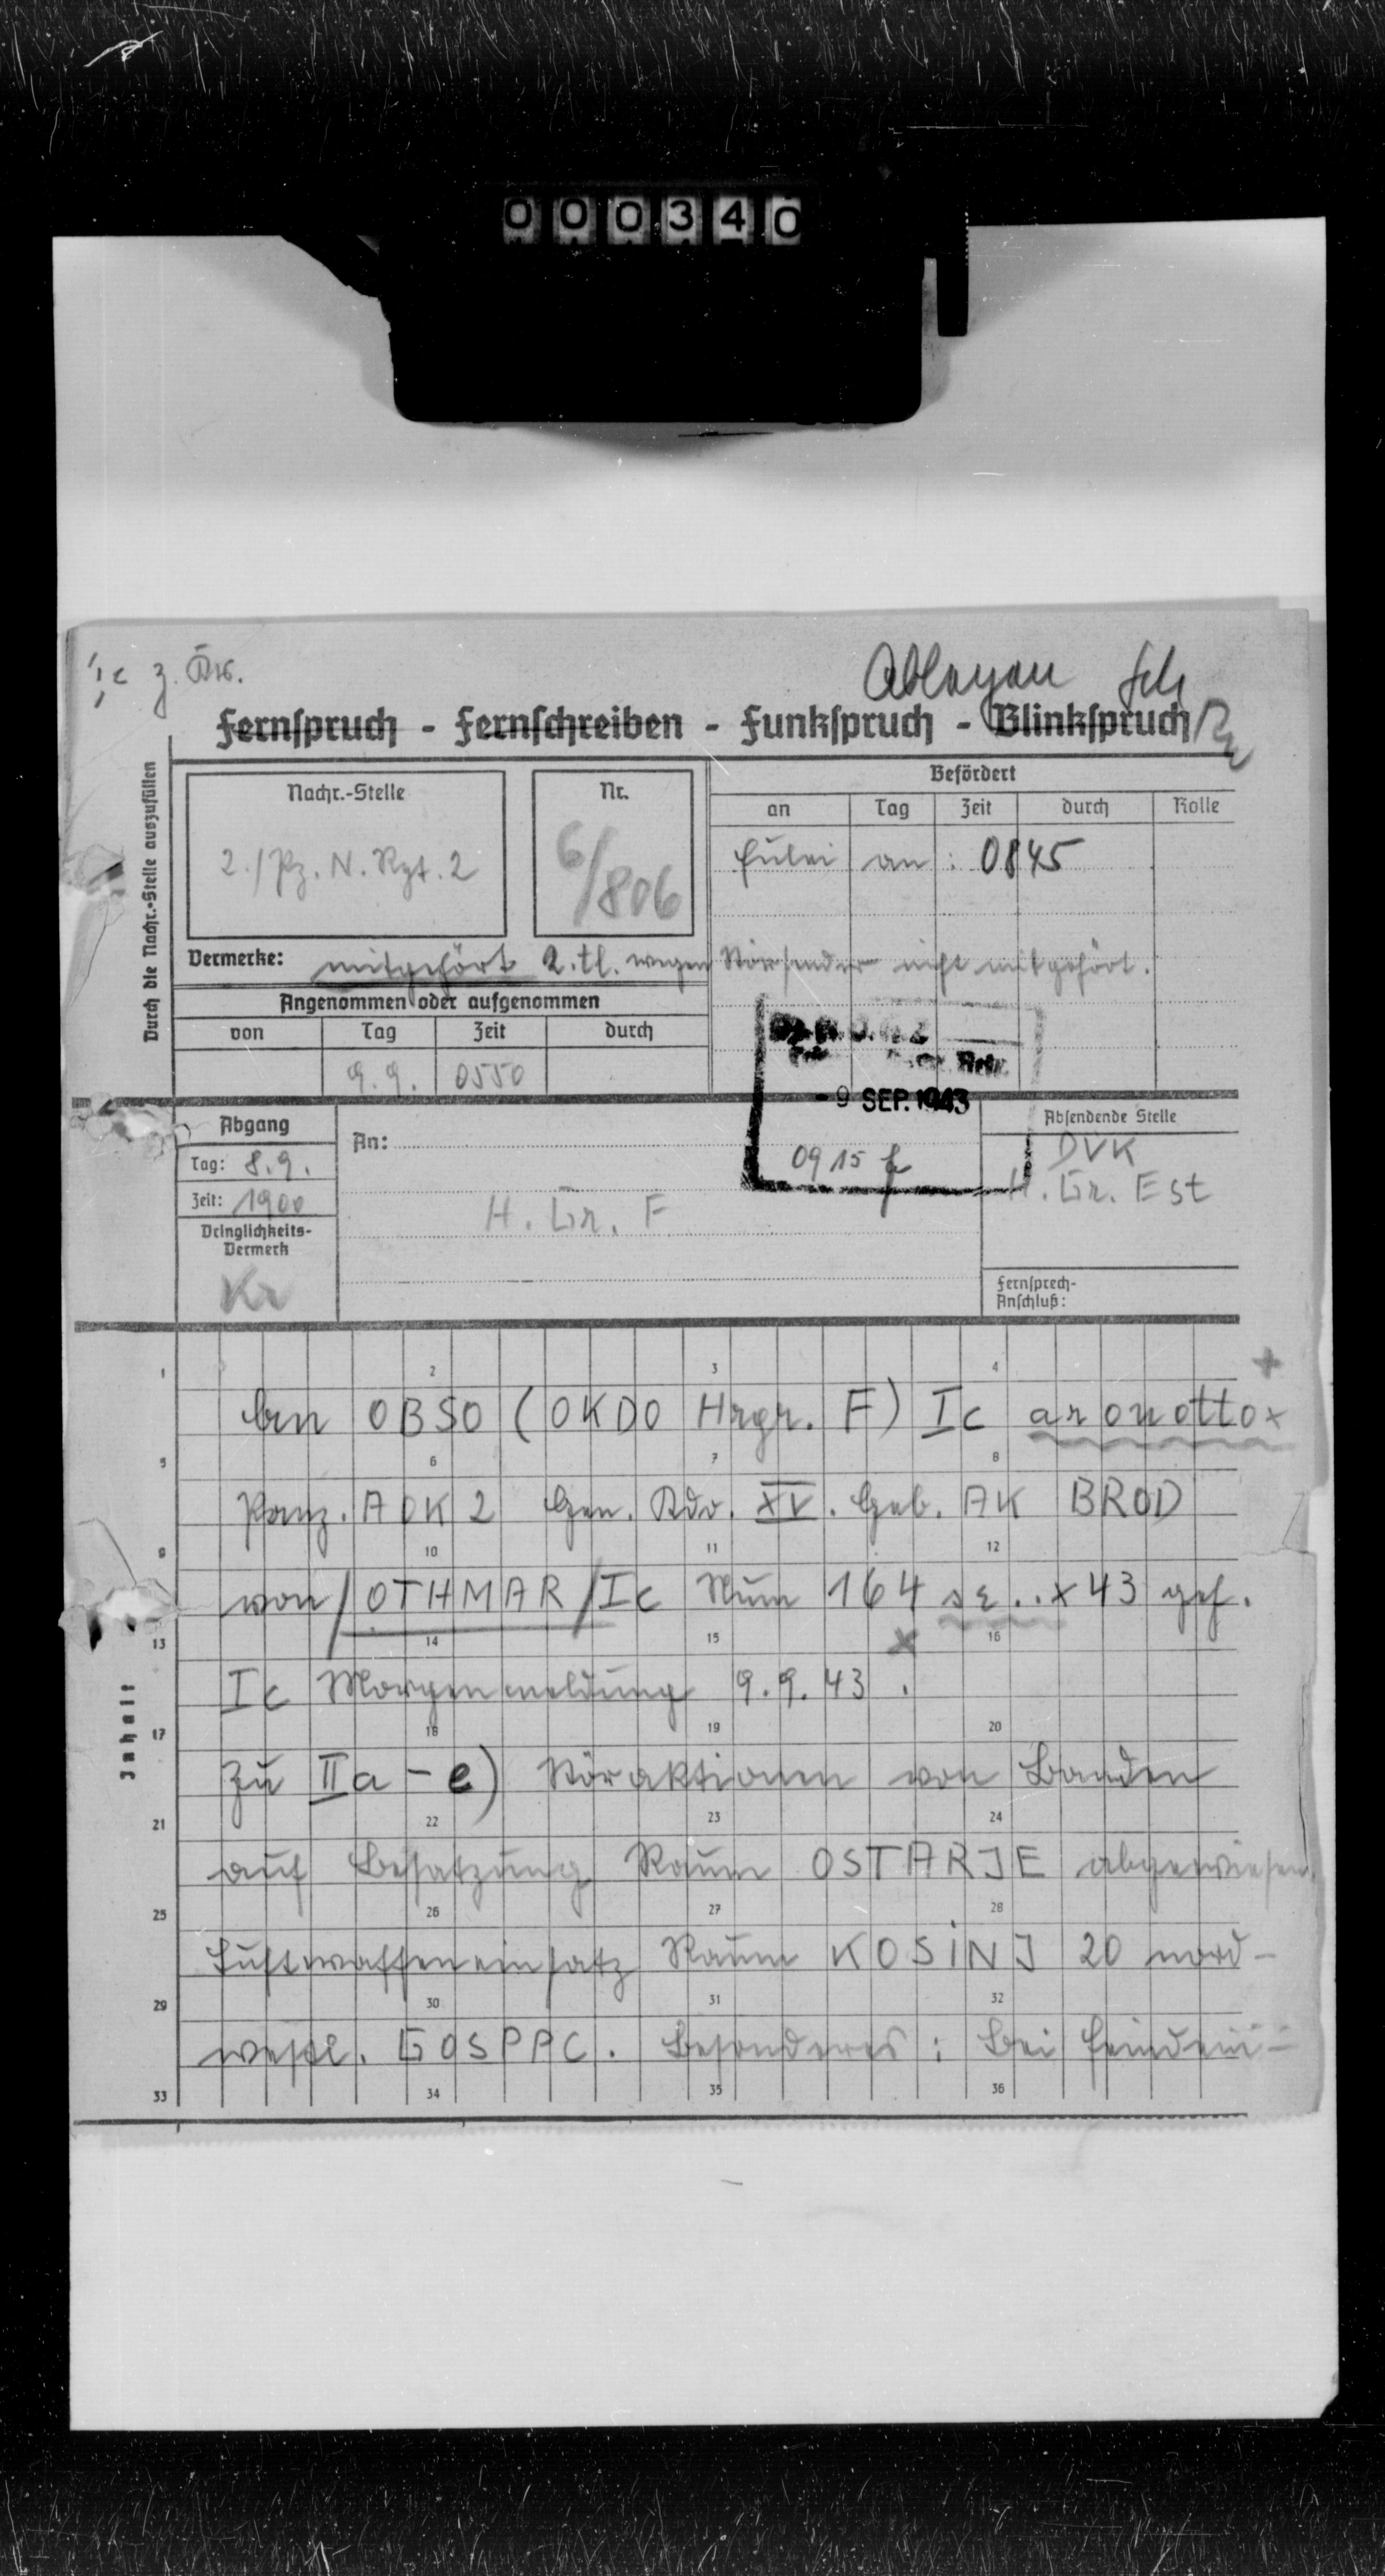 000340
Ic z. Kts.
Ablagen
Fernspruch - Fernschreiben - Funkspruch - Blinkspruch
Durch die Nachr.-Stelle auszufüllen
Nachr.-Stelle
2./Pz. N. Rgt. 2
Nr.
6/806
Befördert
an Tag Zeit durch Rolle
an: 0845
Vermerke: mitgehört 2. tl. wegen Störsender nicht mitgehört.
Angenommen oder aufgenommen
von Tag Zeit durch
9.9. 0550
- 9 SEP. 1943
0915
Abgang
Tag: 8.9.
Zeit: 1900
Dringlichkeits-
Vermerk
Kr
An:
H. Gr. F
Absendende Stelle
DVK
H. Gr. Est
Fernsprech-
Anschluß:
Inhalt
1 2 3 4
An OBSO (OKDO Hrgr. F) Ic aronotto x
5 6 7 8
Panz. AOK 2 Gen. Kdo. XV. Geb. AK BROD
9 10 11 12
von /OTHMAR/ Ic Num 164 se..x 43 geh.
13 14 15 16
Ic Morgenmeldung 9.9.43.
17 18 19 20
Zu IIa - e) Störaktionen von Banden
21 22 23 24
auf Besatzung Raum OSTARJE abgewiesen.
25 26 27 28
Luftwaffeneinsatz Raum KOSINJ 20 nord-
29 30 31 32
westl. GOSPPC. Besonderes: Bei Feindein-
33 34 35 36